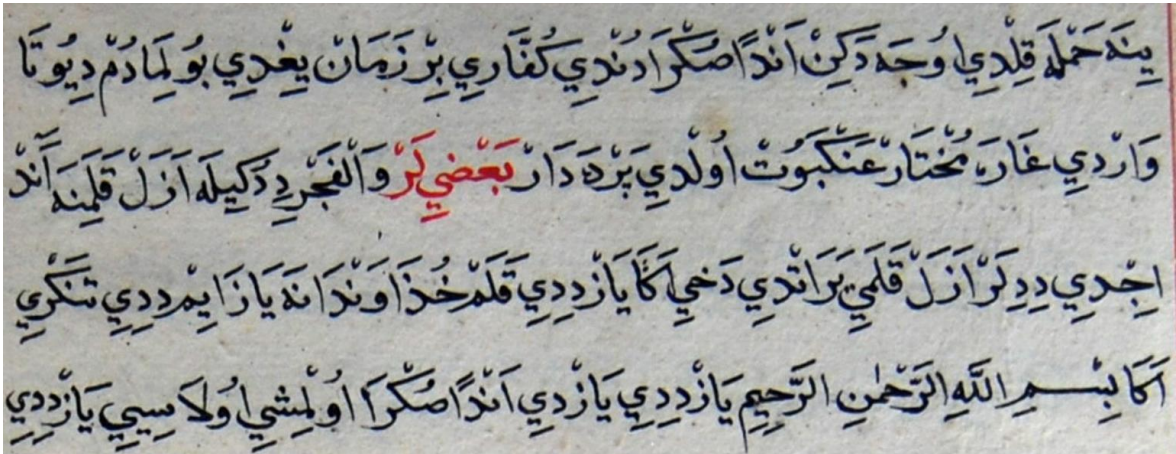 يِنَه حَمْلَه قِلْدِي اُوحَه دَكِنْ اَنْدَا صُكْرَا دُنْدِي كُفَّارِي بِرْ زَمَانْ يِغْدِي بُولِمَادُمْ دِيُوتَا
وَارْدِي غَارَه مُخْتَارْ عَنْكَبُوتْ اُولْدِي پَرْدَه دَارْ بَعْضِيلَرْ وَالْفَجْرِ دِدُكِيلَه اَزَلْ قَلَمِنَه اَنْدْ
اِجْدِي دِدِلَرْ اَزَلْ قَلَمِي يَرَاتْدِي دَخِي اَكَا يَازْ دِدِي قَلَمْ خُذَاوَنْدَا نَه يَازَايِمْ دِدِي تَنْكْرِي
اَكَا بِسْمِ اللَّهِ الرَّحْمٰنِ الرَّحِيمِ يَازْ دِدِي يَازْدِي اَنْدَا صُكْرَا اُولْمِشِي اُولَاسِييِ يَازْ دِدِي